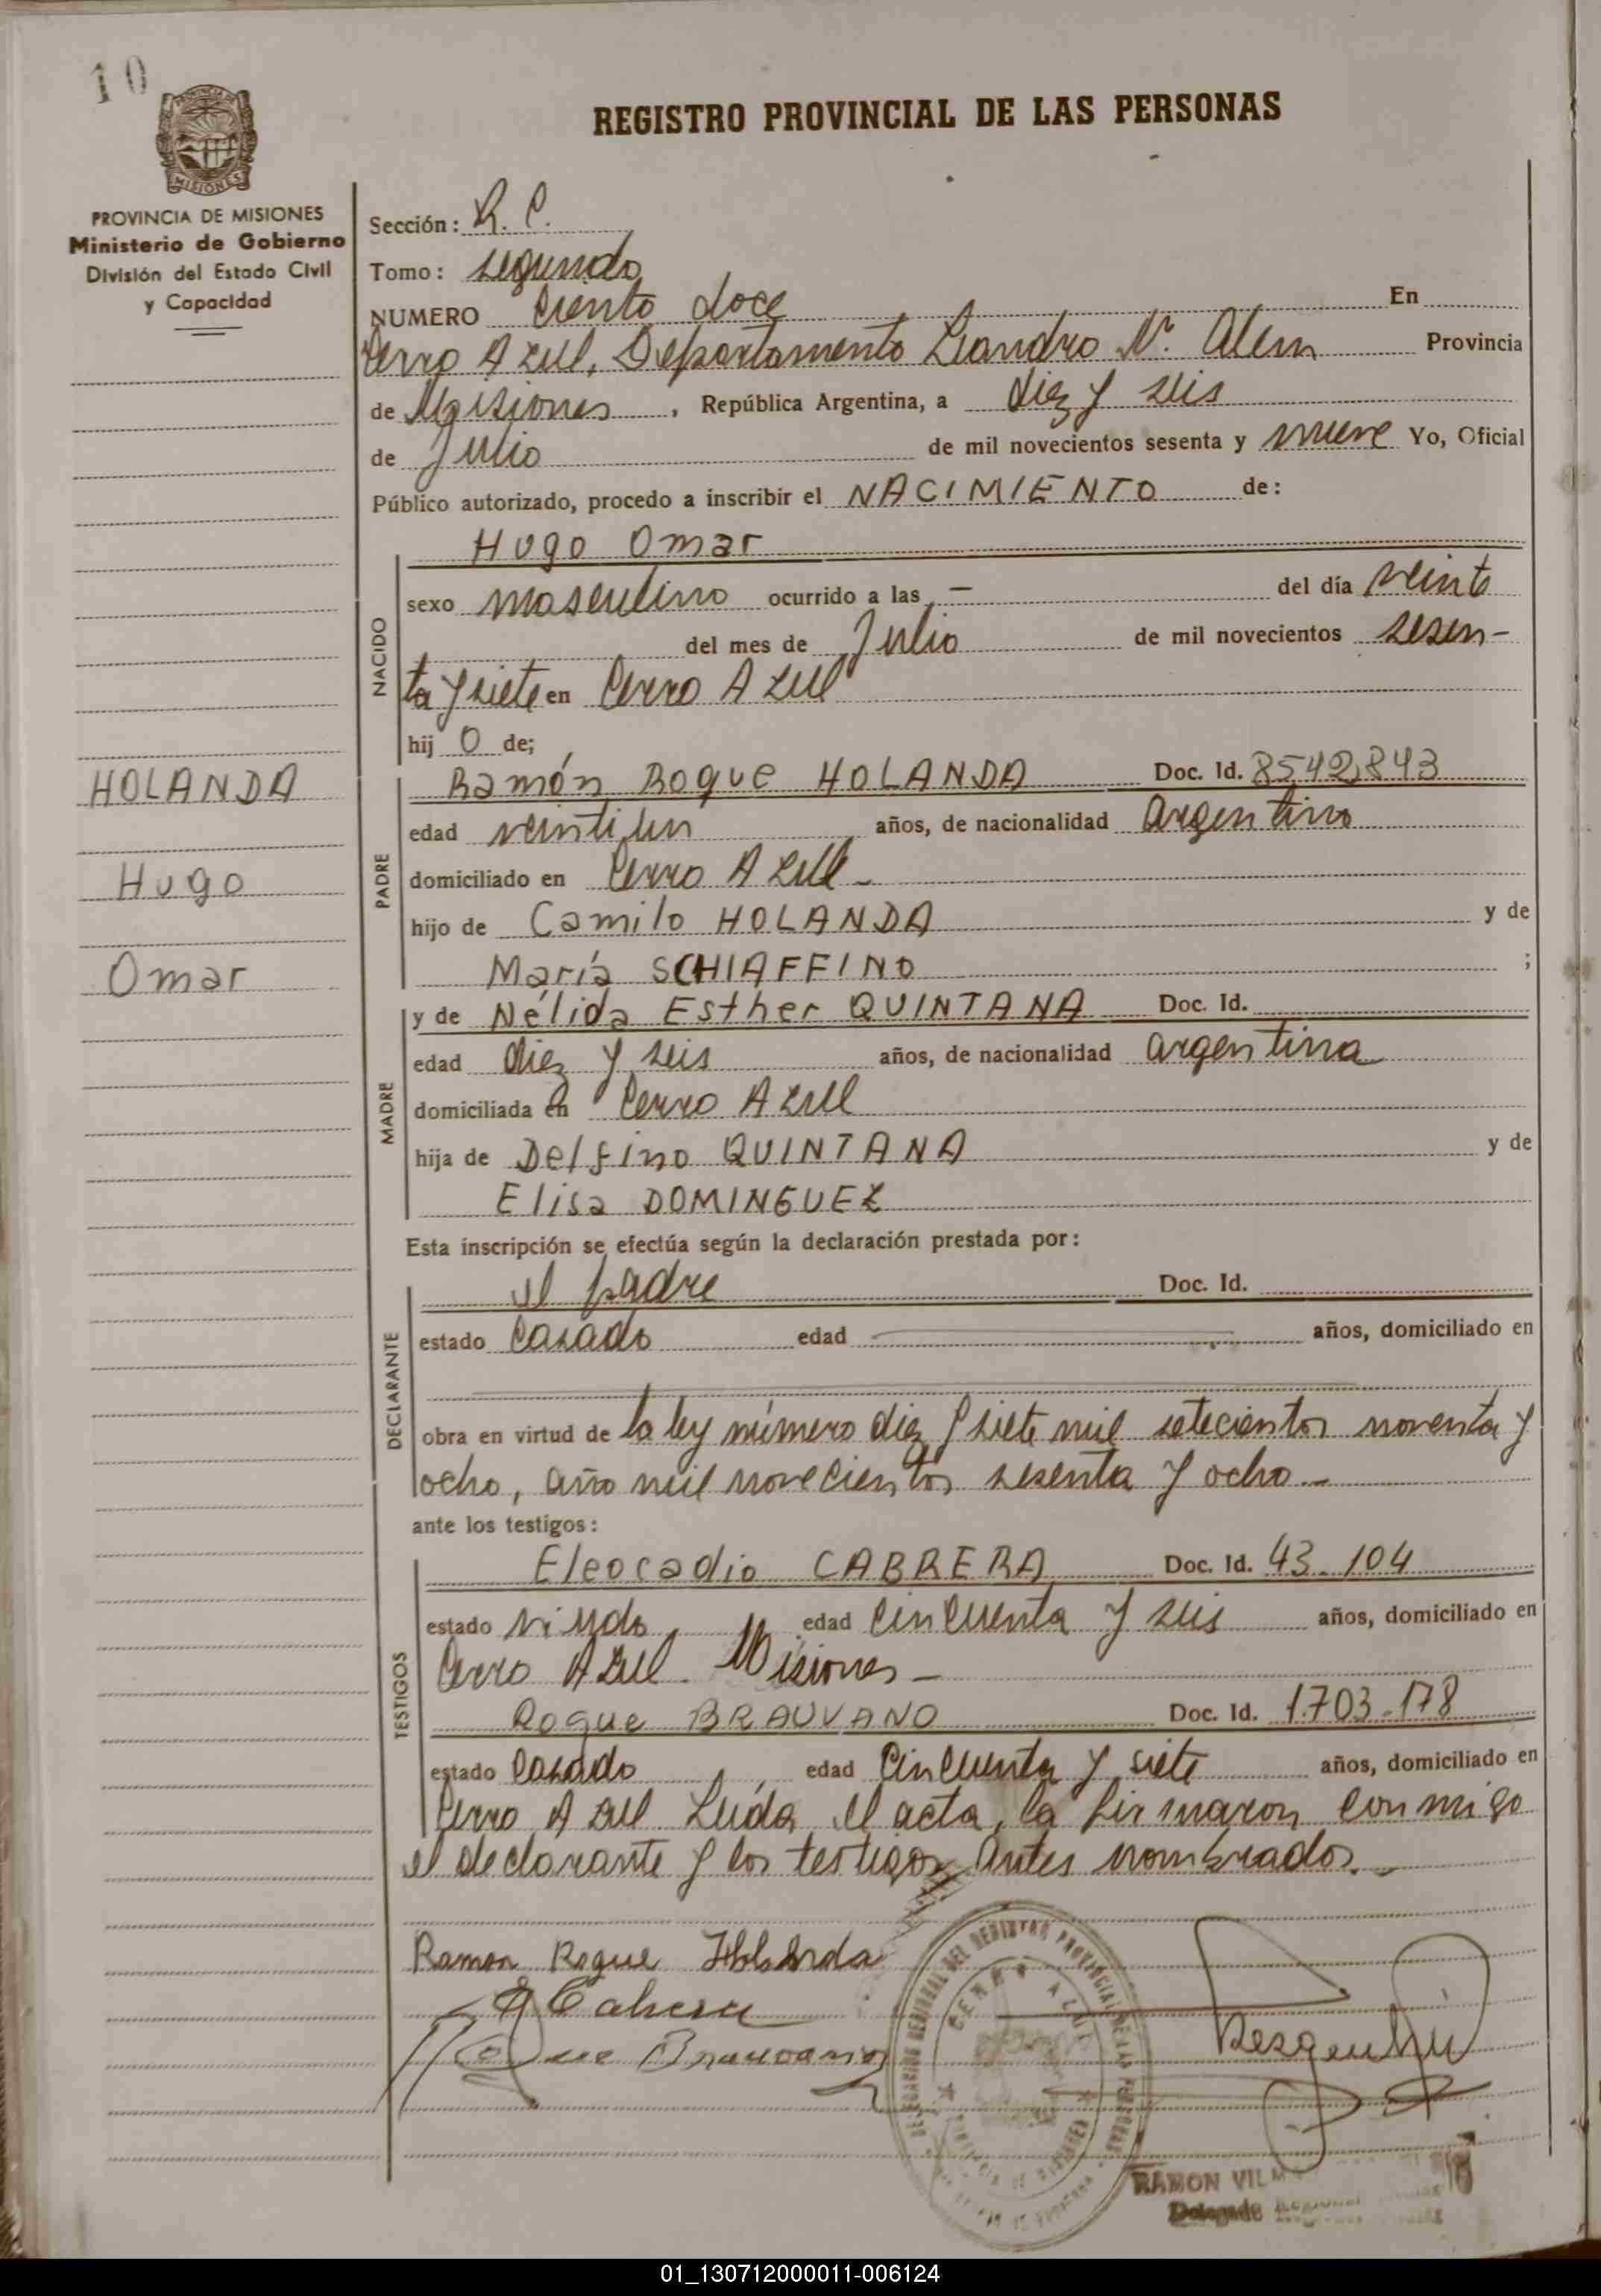 10
PROVINCIA DE MISIONES
MISIONES
PROVINCIA DE MISIONES
Ministerio de Gobierno
División del Estado Civil
y Capacidad
REGISTRO PROVINCIAL DE LAS PERSONAS
Sección: R. C.
Tomo: segundo
NUMERO Ciento doce En
Cerro Azul, Departamento Leandro N. Alem Provincia
de Misiones, República Argentina, a diez y seis
de Julio de mil novecientos sesenta y nueve Yo, Oficial
Público autorizado, procedo a inscribir el NACIMIENTO de:
NACIDO
Hugo Omar
sexo masculino ocurrido a las — del día veinte
del mes de Julio de mil novecientos sesen-
ta y siete en Cerro Azul
hij o de;
HOLANDA
Hugo
Omar
PADRE
Ramón Roque HOLANDA Doc. Id. 8542.843
edad veintiun años, de nacionalidad Argentino
domiciliado en Cerro Azul -
hijo de Camilo HOLANDA y de
María SCHIAFFINO ;
MADRE
y de Nélida Esther QUINTANA Doc. Id.
edad diez y seis años, de nacionalidad argentina
domiciliada en Cerro Azul
hija de Delfino QUINTANA y de
Elisa DOMINGUEZ
Esta inscripción se efectúa según la declaración prestada por:
DECLARANTE
el padre Doc. Id.
estado Casado edad años, domiciliado en
obra en virtud de la ley número diez y siete mil setecientos noventa y
ocho, año mil novecientos sesenta y ocho.-
ante los testigos:
TESTIGOS
Eleocadio CABRERA Doc. Id. 43.104
estado viudo edad cincuenta y seis años, domiciliado en
Cerro Azul. Misiones -
Roque BRAUVANO Doc. Id. 1.703.178
estado Casado edad cincuenta y siete años, domiciliado en
Cerro Azul Leída el acta, la firmaron conmigo
el declarante y los testigos antes nombrados.-
Ramon Roque Holanda
E Cabrera
Roque Brauvano
DELEGACION REGIONAL DEL REGISTRO PROVINCIAL DE LAS PERSONAS
CERRO AZUL
RAMON VIL
Delegado Regional
01_130712000011-006124